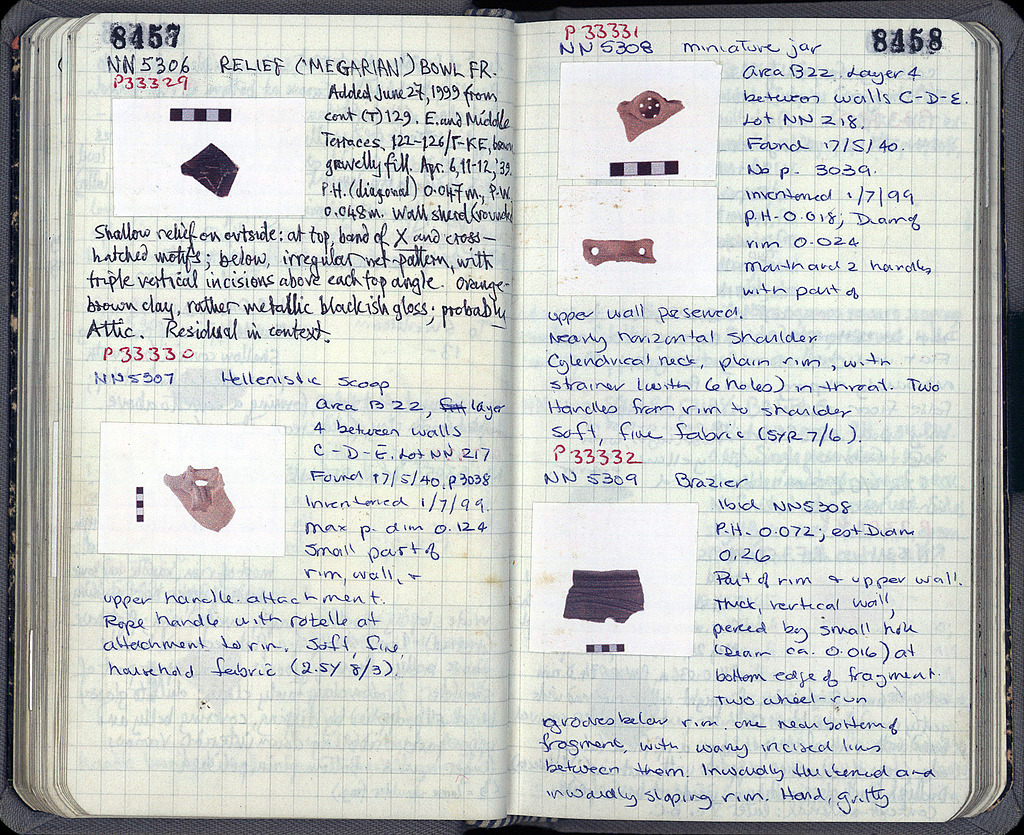 8457
NN 5306 RELIEF ('MEGARIAN') BOWL FR.
P33329
Added June 27, 1999 from
cont (T) 129. E. and Middle
Terraces, 122-126/Γ-KE, brown
gravelly fill. Apr. 6, 11-12, '39.
P.H. (diagonal) 0.047 m., P.W.
0.048 m. Wall sherd (rounded
Shallow relief on outside: at top, band of X and cross-
hatched motifs; below, irregular net-pattern, with
triple vertical incisions above each top angle. Orange-
brown clay, rather metallic blackish gloss; probably
Attic. Residual in context.
P33330
NN5307 Hellenistic scoop
Area B 22, layer
4 between walls
C-D-E. Lot NN 217
Found 17/5/40. P3038
Inventoried 1/7/99.
max p. dim 0.124
Small part of
rim, wall, +
upper handle attachment.
Rope handle with rotelle at
attachment to rim. Soft, fine,
household fabric (2.5Y 8/3).
8458
P33331
NN 5308 miniature jar
Area B22, Layer 4
between walls C-D-E.
Lot NN 218.
Found 17/5/40.
No p. 3039.
Inventoried 1/7/99
P.H. 0.018; Diam of
rim 0.024
Mouth and 2 handles
with part of
upper wall preserved.
Nearly horizontal shoulder
Cylindrical neck, plain rim, with
strainer (with 6 holes) in throat. Two
Handles from rim to shoulder
Soft, fine fabric (5YR 7/6).
P33332
NN 5309 Brazier
Ibid NN5308
P.H. 0.072; est Diam
0.26
Part of rim + upper wall.
Thick, vertical wall,
pierced by small hole
(Diam ca. 0.016) at
bottom edge of fragment.
Two wheel-run
grooves below rim one near bottom of
fragment, with wavy incised lines
between them. Inwardly thickened and
inwardly sloping rim. Hard, gritty